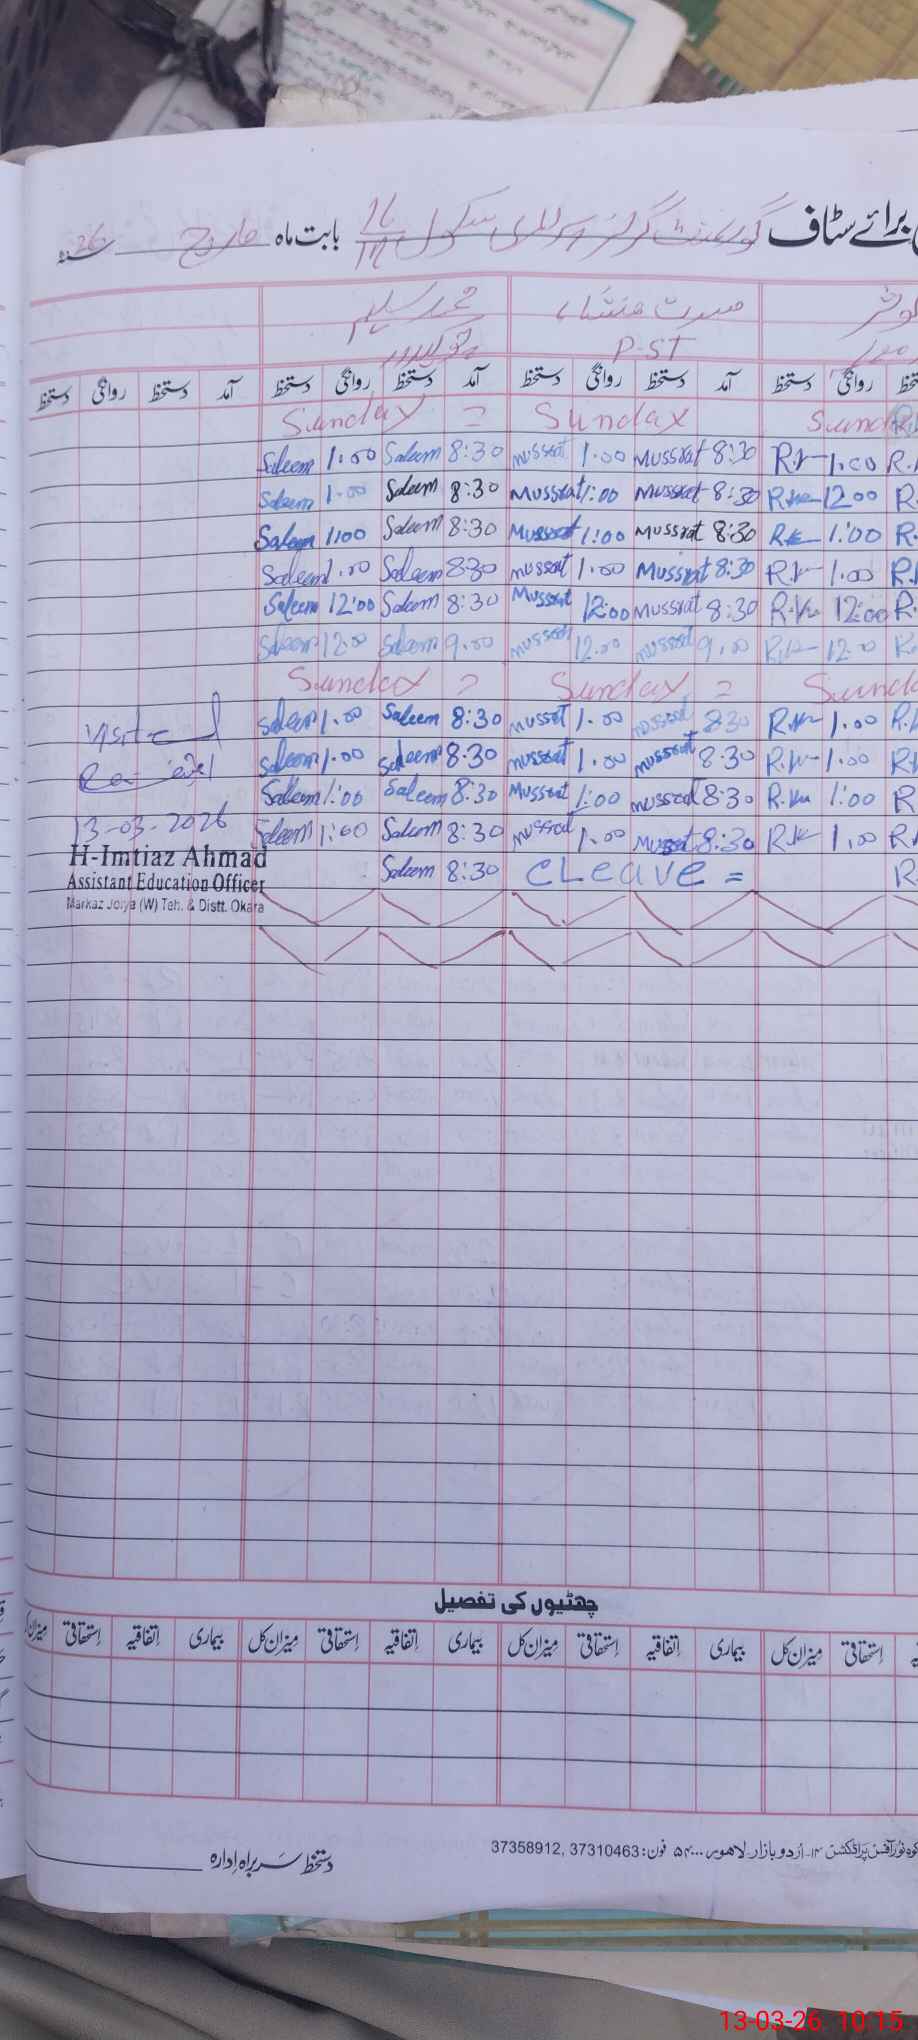 برائے سٹاف گورنمنٹ گرلز پرائمری سکول بابت ماہ مارچ 26
محمد سلیم
مسرت
P-ST
دستخط روانگی دستخط آمد دستخط روانگی دستخط آمد دستخط روانگی دستخط آمد دستخط روانگی
Sunday = Sunday Sund
Saleem 1.00 Saleem 8:30 mussrat 1.00 Mussrat 8:30 R.K 1.00 R.
Saleem 1.00 Saleem 8:30 Mussrat 1:00 Mussrat 8:30 R.K 12.00 R.
Saleem 1:00 Saleem 8:30 Mussrat 1:00 Mussrat 8:30 R.K 1:00 R.
Saleem 1.00 Saleem 8:30 mussrat 1.00 Mussrat 8:30 R.K 1.00 R.
Saleem 12:00 Saleem 8:30 Mussrat 12:00 Mussrat 8:30 R.K 12:00 R.
Saleem 12.00 Saleem 9.00 mussrat 12.00 mussrat 9.00 R.K 12.00 R.
Sunday = Sunday = Sund
Saleem 1.00 Saleem 8:30 musset 1.00 mussrat 8:30 R.K 1.00 R.
Saleem 1.00 Saleem 8:30 mussrat 1.00 mussrat 8:30 R.K 1.00 R
Saleem 1:00 Saleem 8:30 Mussrat 1:00 mussrat 8:30 R.K 1:00 R
Saleem 1:00 Saleem 8:30 mussrat 1.00 Mussrat 8:30 R.K 1.00 R.
Saleem 8:30 CLeave = R.
Visited
13-03-2026
H-Imtiaz Ahmad
Assistant Education Officer
Markaz Jorya (W) Teh. & Distt. Okara
چھٹیوں کی تفصیل
استحقاقی میزان کل بیماری اتفاقیہ استحقاقی میزان کل بیماری اتفاقیہ استحقاقی میزان کل بیماری اتفاقیہ استحقاقی میزان
کوہ نور آفس پراڈکٹس ۱۴-اردو بازار-لاہور...۵۴ فون: 37358912, 37310463
دستخط سربراہ ادارہ
13-03-26 10:15